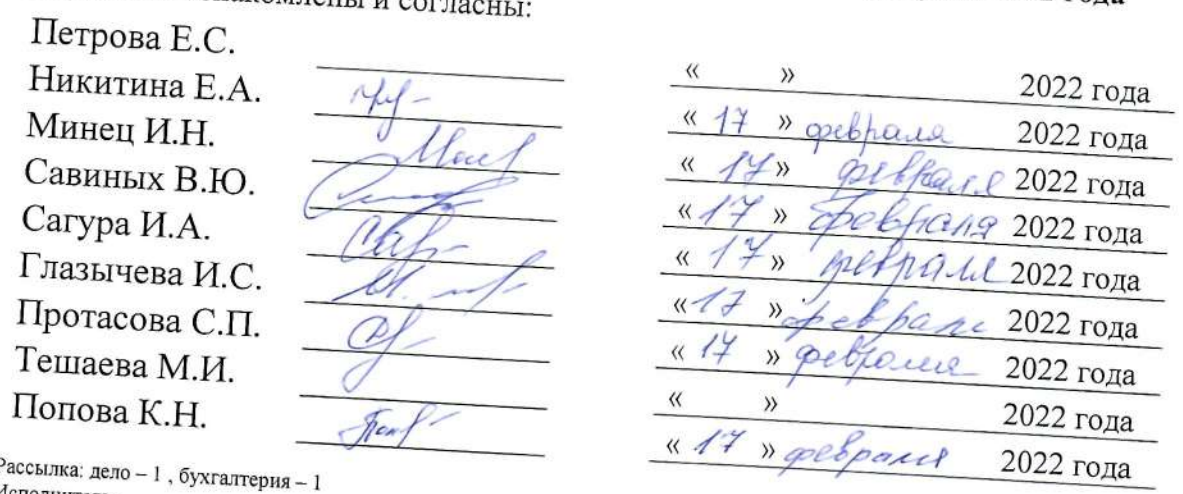 и согласны:
Петрова Е.С. « » 2022 года
Никитина Е.А. « 17 » февраля 2022 года
Минец И.Н. « 17 » февраля 2022 года
Савиных В.Ю. « 17 » февраля 2022 года
Сагура И.А. « 17 » февраля 2022 года
Глазычева И.С. « 17 » февраля 2022 года
Протасова С.П. « 17 » февраля 2022 года
Тешаева М.И. « » 2022 года
Попова К.Н. « 17 » февраля 2022 года
Рассылка: дело – 1 , бухгалтерия – 1